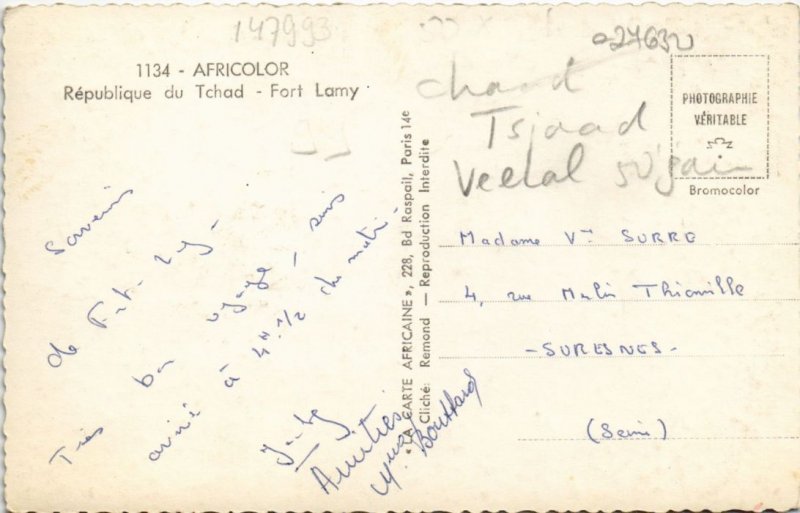 147993
024630
1134 - AFRICOLOR
République du Tchad - Fort Lamy
Tsjaad
Veelal 50'
PHOTOGRAPHIE
VÉRITABLE
Bromocolor
« LA CARTE AFRICAINE », 228, Bd Raspail, Paris 14e
Cliché: Remond — Reproduction Interdite
Souvenir
de Fort-Lamy.
Très bon voyage, suis
arrivé à 4H 1/2 du matin.
Amitiés
M. Bouffard
Madame Vve SURRE
4, rue Merlin Thionville
- SURESNES -
(Seine)